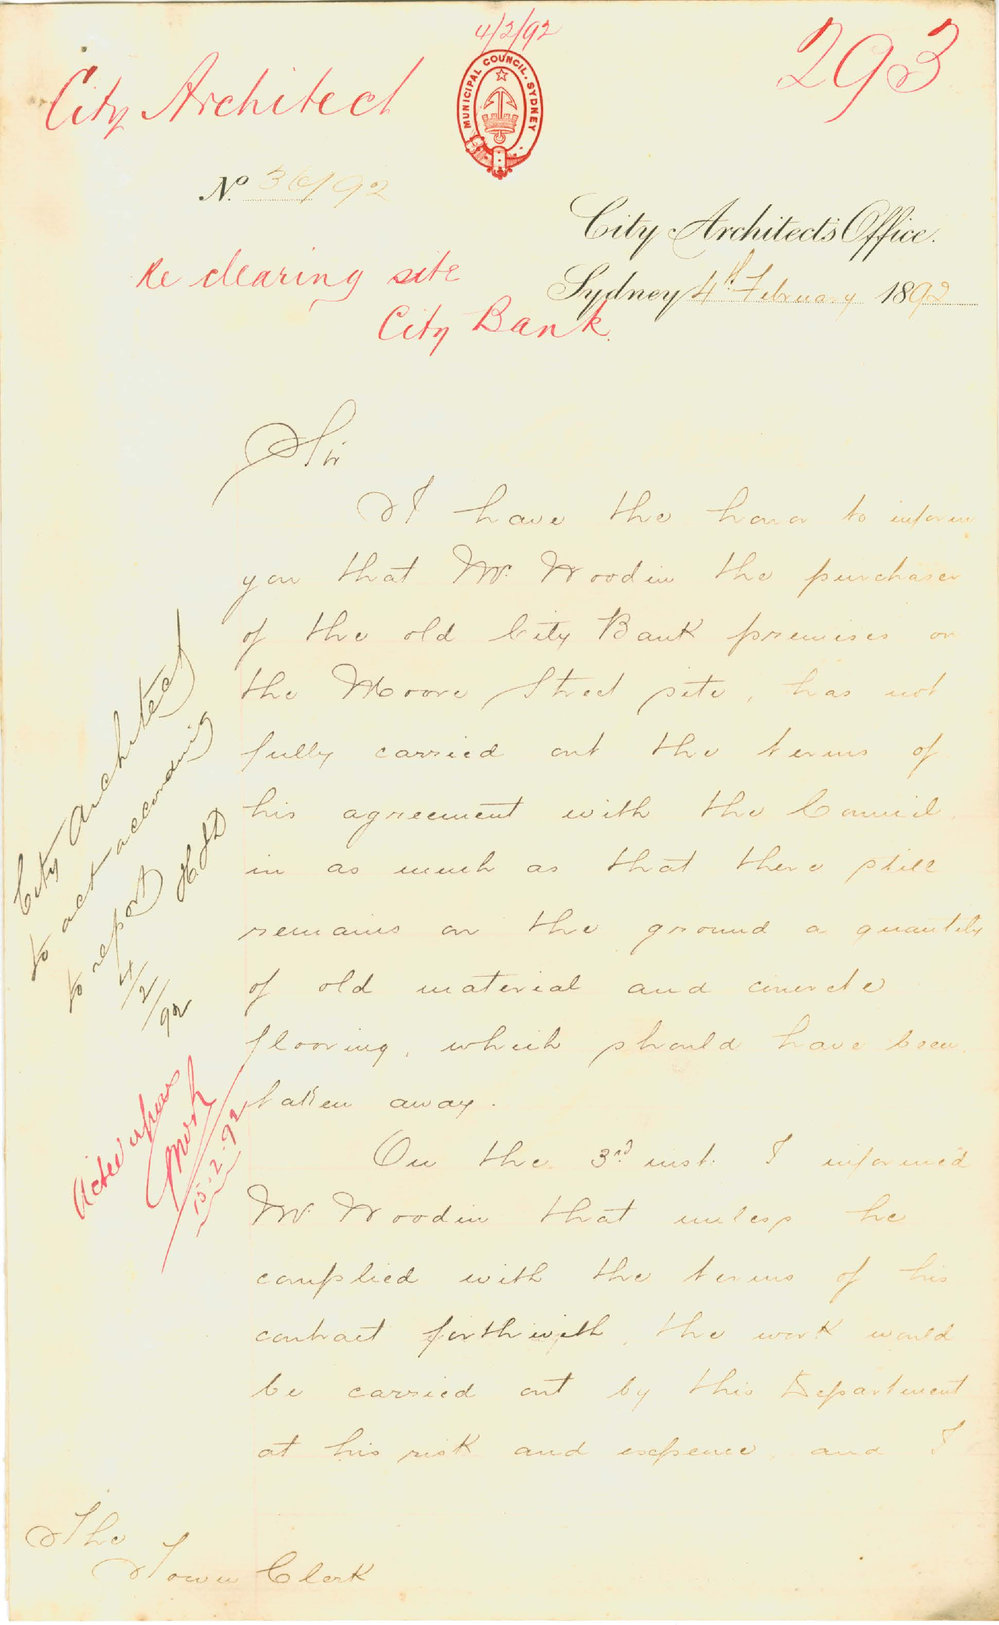 4/2/92
293
City Architect
MUNICIPAL COUNCIL. SYDNEY
No. 36/92
City Architect's Office.
Re clearing site
Sydney 4th February 1892
City Bank.
Sir
I have the honor to inform
you that Mr. Woodin the purchaser
of the old City Bank premises on
the Moore Street site, has not
fully carried out the terms of
his agreement with the Council,
in as much as that there still
remains on the ground a quantity
of old material and concrete
flooring, which should have been
taken away.
On the 3rd inst. I informed
Mr. Woodin that unless he
complied with the terms of his
contract forthwith, the work would
be carried out by this Department
at his risk and expence, and I
The
Town Clerk
City Architect
to act according
to report
4/2/92
Acted upon
15.2.92